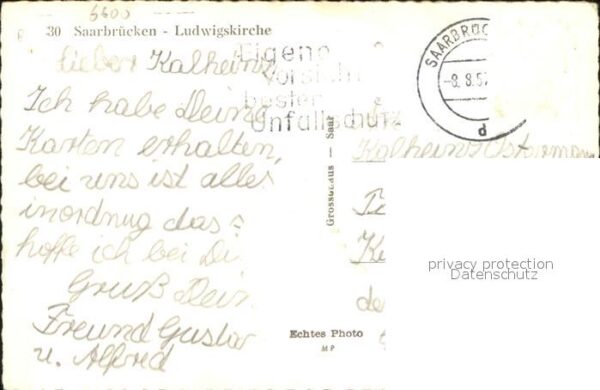 6600
30 Saarbrücken - Ludwigskirche
lieber Kalheinz
Ich habe Deine
Karten erhalten,
bei uns ist alles
inordnug das s
hoffe ich bei Di
Gruß Dein
Freund Gustav
u. Alfred
Eigene
Vorsicht
bester
Unfallschutz
SAARBRÜC
-8.8.57
d
Grossehaus - Saar
Kalheinz
Echtes Photo
MP
privacy protection
Datenschutz